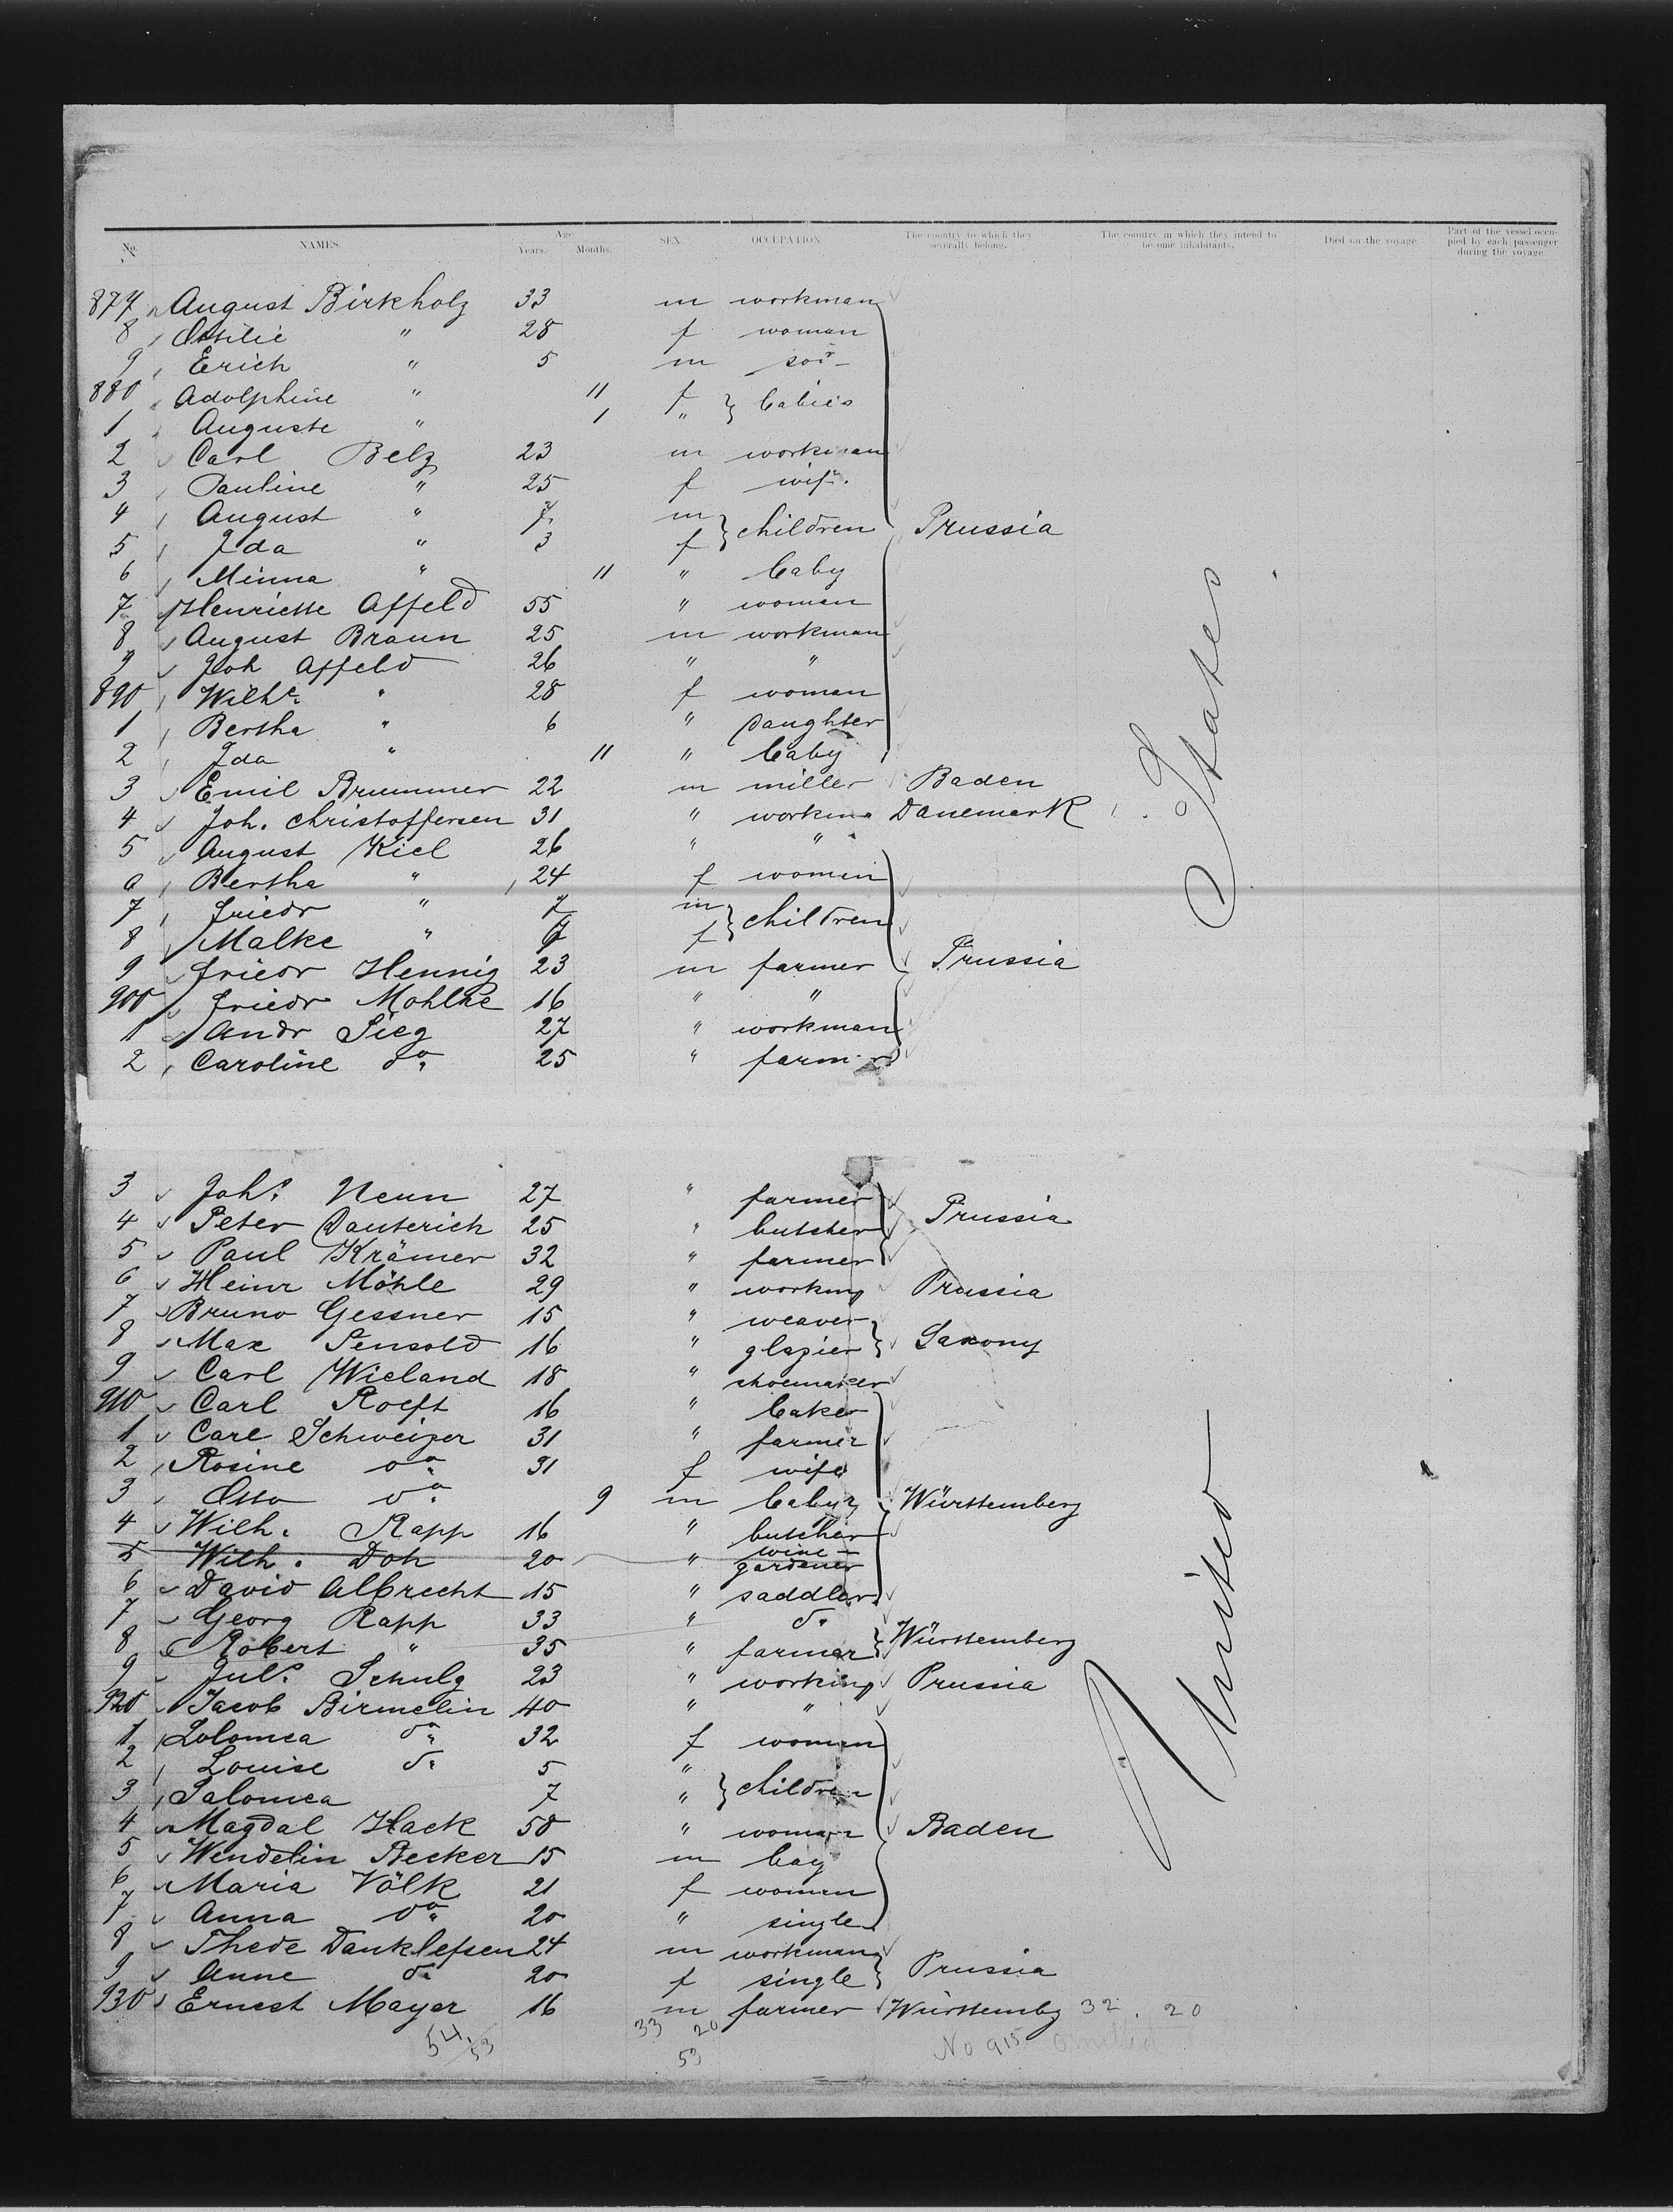 No. NAMES. Age Years. Months. SEX. OCCUPATION The country to which they severally belong. The country in which they intend to become inhabitants. Died on the voyage. Part of the vessel occupied by each passenger during the voyage.
877 August Birkholz 33 m workman
8 Ottilie " 28 f woman
9 Erich " 5 m son
880 Adolphine " 11 f } babies
1 Auguste " 1 "
2 Carl Belz 23 m workman
3 Pauline " 25 f wife
4 August " 7 m } children Prussia
5 Ida " 3 f
6 Minna " 11 " baby
7 Henriette Affeld 55 " woman
8 August Braun 25 m workman
9 Joh Affeld 26 " "
890 Wilhe. " 28 f woman
1 Bertha " 6 " Daughter
2 Ida " 11 " baby
3 Emil Brummer 22 m miller Baden
4 Joh. Christoffersen 31 " workm Danemark
5 August Kiel 26 " "
6 Bertha " 24 f women
7 Friedr " 7 m } children
8 Malke " f
9 Friedr Hennig 23 m farmer Prussia
900 Friedr Mohlke 16 " "
1 Andr Sieg 27 " workman
2 Caroline do. 25 " farmer
States
3 Johs. Neun 27 " farmer
4 Peter Dauterich 25 " butcher Prussia
5 Paul Krämer 32 " farmer
6 Heinr Möhle 29 " workmg Prussia
7 Bruno Gessner 15 " weaver
8 Max Sensold 16 " glazier } Saxony
9 Carl Wieland 18 " shoemaker
910 Carl Roeft 16 " baker
1 Carl Schweizer 31 " farmer
2 Rosine do. 31 f wife
3 Otto do. 9 m baby Württemberg
4 Wilh. Rapp 16 " butcher
5 Wilh. Doh 20 " wine-gardener
6 David Albrecht 15 " saddler
7 Georg Rapp 33 " do.
8 Robert " 35 " farmer } Württemberg
9 Juls. Schulz 23 " workmg Prussia
920 Jacob Birmelin 40 " "
1 Solomea do. 32 f woman
2 Louise do. 5 " } children
3 Salomea 7 "
4 Magdal Hack 58 " woman Baden
5 Wendelin Becker 15 m boy
6 Maria Völk 21 f woman
7 Anna do. 20 " single
8 Thede Danklefsen 24 m workman
9 Anne do. 20 f single } Prussia
930 Ernest Mayer 16 m farmer Württembg 32. 20
United
54 53 33 20
53 No 915 omitted